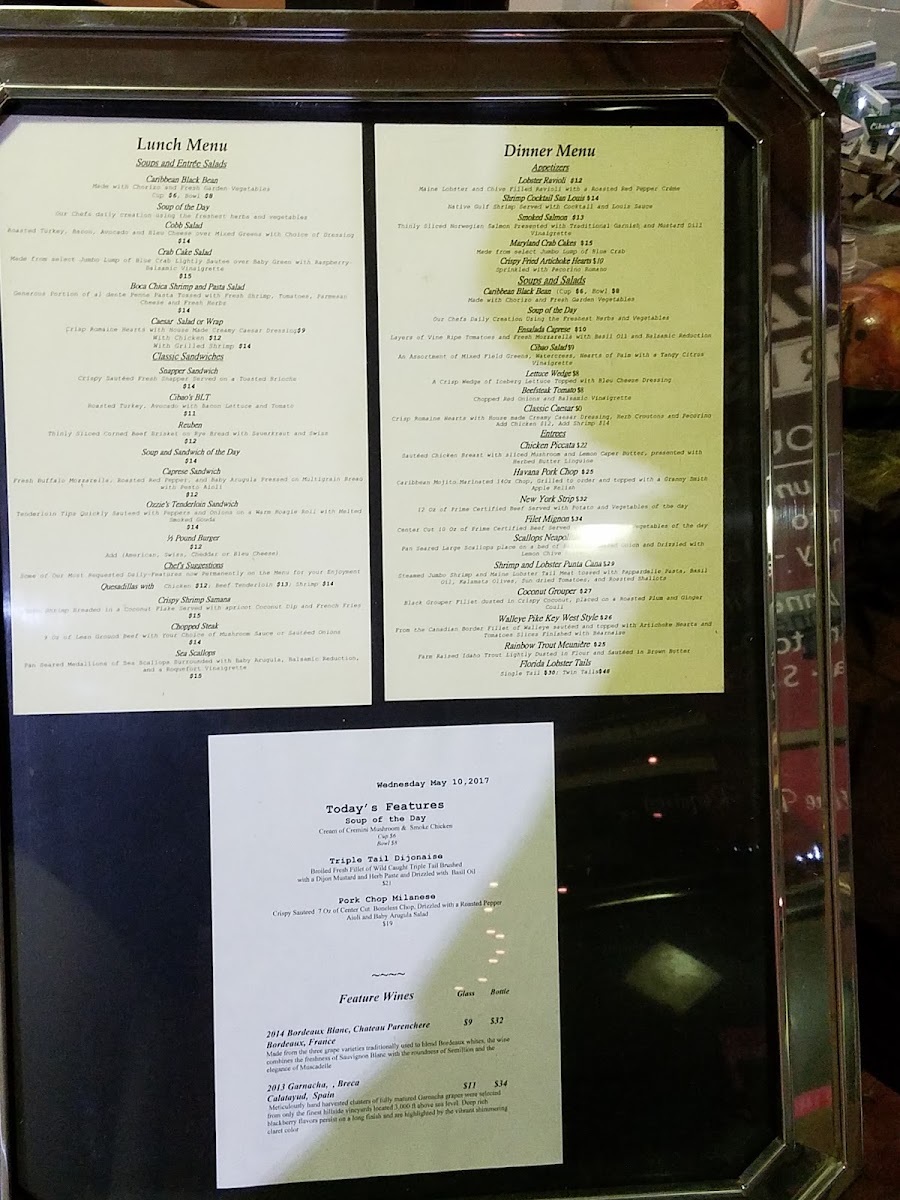 Lunch Menu
Soups and Entrée Salads
Caribbean Black Bean
Made with Chorizo and Fresh Garden Vegetables
Cup $6, Bowl $8
Soup of the Day
Our Chefs daily creation using the freshest herbs and vegetables
Cobb Salad
Roasted Turkey, Bacon, Avocado and Bleu Cheese over Mixed Greens with Choice of Dressing
$14
Crab Cake Salad
Made from select Jumbo Lump of Blue Crab Lightly Sautee over Baby Green with Raspberry-
Balsamic Vinaigrette
$15
Boca Chica Shrimp and Pasta Salad
Generous Portion of al dente Penne Pasta Tossed with Fresh Shrimp, Tomatoes, Parmesan
Cheese and Fresh Herbs
$14
Caesar Salad or Wrap
Crisp Romaine Hearts with House Made Creamy Caesar Dressing $9
With Chicken $12
With Grilled Shrimp $14
Classic Sandwiches
Snapper Sandwich
Crispy Sautéed Fresh Snapper Served on a Toasted Brioche
$14
Cibao's BLT
Roasted Turkey, Avocado with Bacon Lettuce and Tomato
$11
Reuben
Thinly Sliced Corned Beef Brisket on Rye Bread with Sauerkraut and Swiss
$12
Soup and Sandwich of the Day
$14
Caprese Sandwich
Fresh Buffalo Mozzarella, Roasted Red Pepper, and Baby Arugula Pressed on Multigrain Bread
with Pesto Aioli
$12
Ozzie's Tenderloin Sandwich
Tenderloin Tips Quickly Sauteed with Peppers and Onions on a Warm Hoagie Roll with Melted
Smoked Gouda
$14
½ Pound Burger
$12
Add (American, Swiss, Cheddar or Bleu Cheese)
Chef's Suggestions
Some of Our Most Requested Daily-Features now Permanently on the Menu for your Enjoyment
Quesadillas with Chicken $12, Beef Tenderloin $13, Shrimp $14
Crispy Shrimp Samana
Shrimp Breaded in a Coconut Flake Served with apricot Coconut Dip and French Fries
$15
Chopped Steak
8 Oz of Lean Ground Beef with Your Choice of Mushroom Sauce or Sautéed Onions
$14
Sea Scallops
Pan Seared Medallions of Sea Scallops Surrounded with Baby Arugula, Balsamic Reduction,
and a Roquefort Vinaigrette
$15
Dinner Menu
Appetizers
Lobster Ravioli $12
Maine Lobster and Chive Filled Ravioli with a Roasted Red Pepper Crème
Shrimp Cocktail San Louis $14
Native Gulf Shrimp Served with Cocktail and Louis Sauce
Smoked Salmon $13
Thinly Sliced Norwegian Salmon Presented with Traditional Garnish and Mustard Dill
Vinaigrette
Maryland Crab Cakes $15
Made from select Jumbo Lump of Blue Crab
Crispy Fried Artichoke Hearts $10
Sprinkled with Pecorino Romano
Soups and Salads
Caribbean Black Bean (Cup $6, Bowl $8
Made with Chorizo and Fresh Garden Vegetables
Soup of the Day
Our Chefs Daily Creation Using the Freshest Herbs and Vegetables
Ensalada Caprese $10
Layers of Vine Ripe Tomatoes and Fresh Mozzarella with Basil Oil and Balsamic Reduction
Cibao Salad $9
An Assortment of Mixed Field Greens, Watercress, Hearts of Palm with a Tangy Citrus
Vinaigrette
Lettuce Wedge $8
A Crisp Wedge of Iceberg Lettuce Topped with Bleu Cheese Dressing
Beefsteak Tomato $8
Chopped Red Onions and Balsamic Vinaigrette
Classic Caesar
Crisp Romaine Hearts with House made Creamy Caesar Dressing, Herb Croutons and Pecorino
Add Chicken $12, Add Shrimp $14
Entrees
Chicken Piccata $22
Sautéed Chicken Breast with sliced Mushroom and Lemon Caper Butter, presented with
Herbed Butter Linguine
Havana Pork Chop $25
Caribbean Mojito Marinated 14Oz Chop, Grilled to order and topped with a Granny Smith
Apple Relish
New York Strip $32
12 Oz of Prime Certified Beef Served with Potato and Vegetables of the day
Filet Mignon $34
Center Cut 10 Oz of Prime Certified Beef Served vegetables of the day
Scallops
Pan Seared Large Scallops place on a bed of Onion and Drizzled with
Lemon Chive
Shrimp and Lobster Punta Cana $29
Steamed Jumbo Shrimp and Maine Lobster Tail Meat tossed with Pappardelle Pasta, Basil
Oil, Kalamata Olives, Sun dried Tomatoes, and Roasted Shallots
Coconut Grouper $27
Black Grouper Fillet dusted in Crispy Coconut, placed on a Roasted Plum and Ginger
Couli
Walleye Pike Key West Style $26
From the Canadian Border Fillet of Walleye sautéed and topped with Artichoke Hearts and
Tomatoes Slices Finished with Béarnaise
Rainbow Trout Meunière $25
Farm Raised Idaho Trout Lightly Dusted in Flour and Sautéed in Brown Butter
Florida Lobster Tails
Single Tail $30; Twin Tails $48
Wednesday May 10,2017
Today's Features
Soup of the Day
Cream of Cremini Mushroom & Smoke Chicken
Cup $6
Bowl $8
Triple Tail Dijonaise
Broiled Fresh Fillet of Wild Caught Triple Tail Brushed
with a Dijon Mustard and Herb Paste and Drizzled with Basil Oil
$21
Pork Chop Milanese
Crispy Sauteed 7 Oz of Center Cut Boneless Chop, Drizzled with a Roasted Pepper
Aioli and Baby Arugula Salad
$19
~~~~
Feature Wines Glass Bottle
2014 Bordeaux Blanc, Chateau Parenchere $9 $32
Bordeaux, France
Made from the three grape varieties traditionally used to blend Bordeaux whites, the wine
combines the freshness of Sauvignon Blanc with the roundness of Semillion and the
elegance of Muscadelle
2013 Garnacha, , Breca $11 $34
Calatayud, Spain
Meticulously hand harvested clusters of fully matured Garnacha grapes were selected
from only the finest hillside vineyards located 3,000 ft above sea level. Deep rich
blackberry flavors persist on a long finish and are highlighted by the vibrant shimmering
claret color